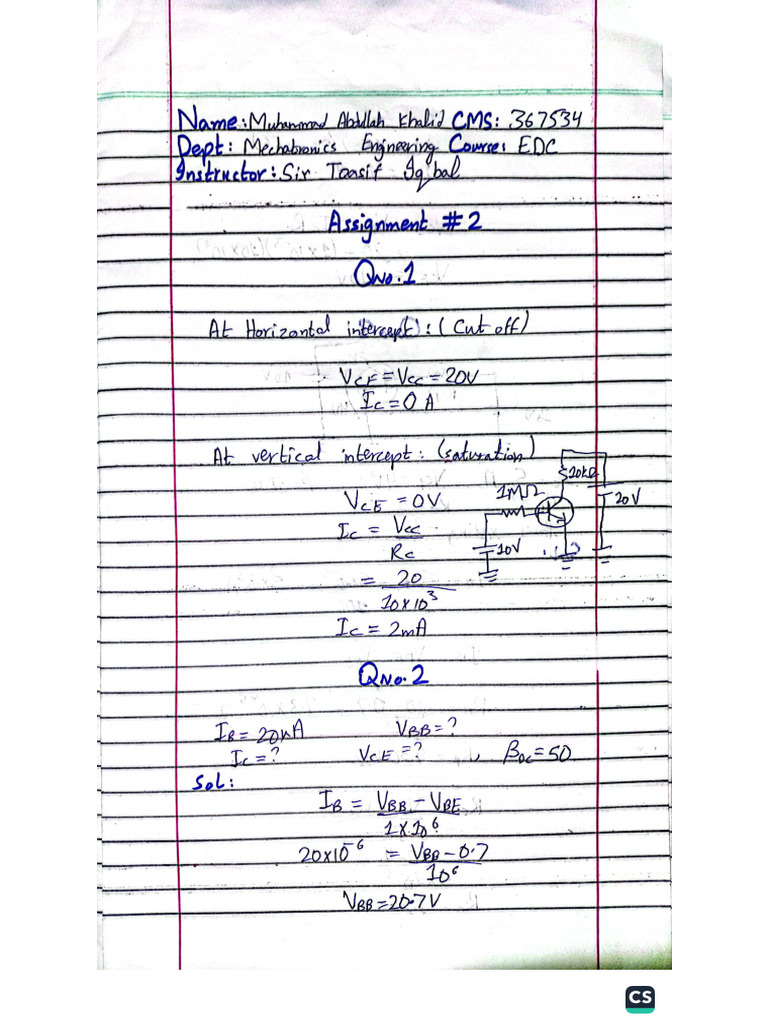 Name: Muhammad Abdullah Khalid CMS: 367534
Dept: Mechatronics Engineering Course: EDC
Instructor: Sir Toasif Iqbal
Assignment #2
Qno.1
At Horizontal intercept: (Cut off)
VCE = VCC = 20V
IC = 0 A
At vertical intercept: (saturation)
10kΩ
1MΩ
20V
10V
VCE = 0V
IC = VCC
RC
= 20
10×10³
IC = 2mA
Qno.2
IB = 20μA VBB = ?
IC = ? VCE = ? , βDC = 50
Sol:
IB = VBB - VBE
1×10⁶
20×10⁻⁶ = VBB - 0.7
10⁶
VBB = 20.7V
CS